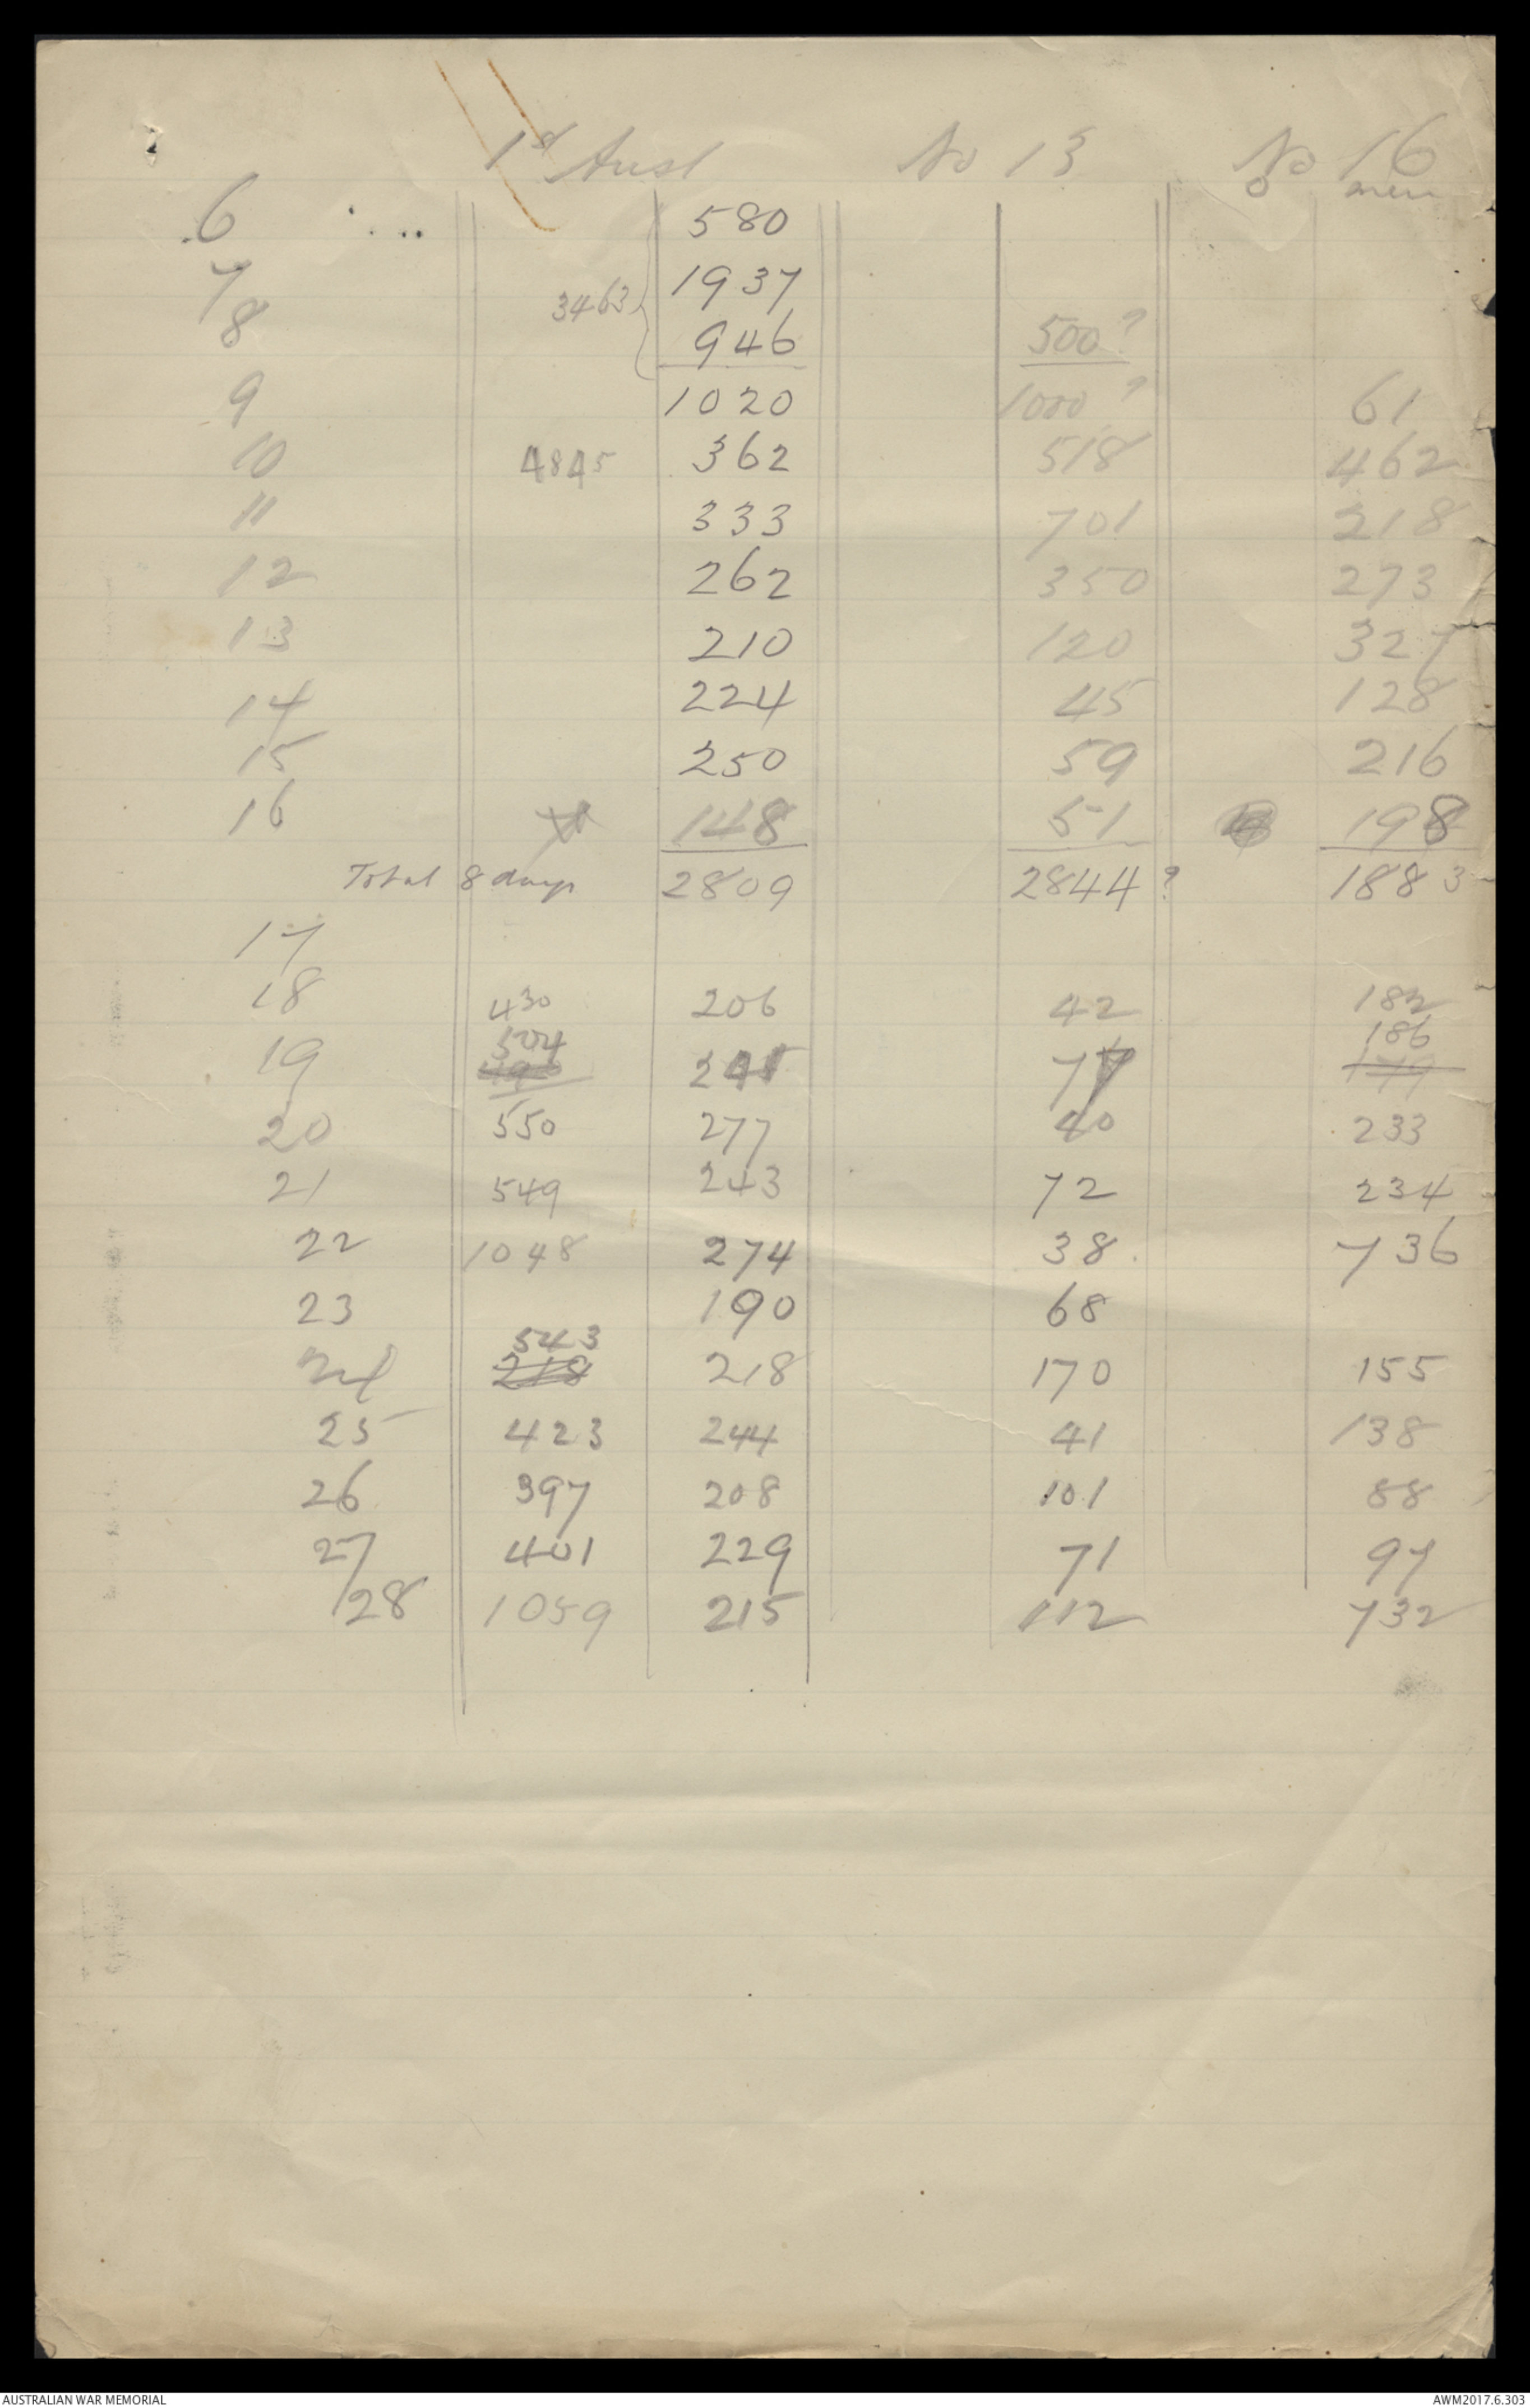 1st Aust No 13 No 16
o men
6 580
7 1937
3463
8 946 500?
9 1020 1000? 61
10 4845 362 518 462
11 333 701 218
12 262 350 273
13 210 120 327
14 224 45 128
15 250 59 216
16 148 51 198
Total 8 days 2809 2844? 1883
17
18 430 206 42 182
504 186
19 241 77 179
20 550 277 40 233
21 549 243 72 234
22 1048 274 38 736
23 190 68
543
24 218 218 170 155
25 423 244 41 138
26 397 208 101 88
27 401 229 71 97
28 1059 215 112 732
AUSTRALIAN WAR MEMORIAL AWM2017.6.303